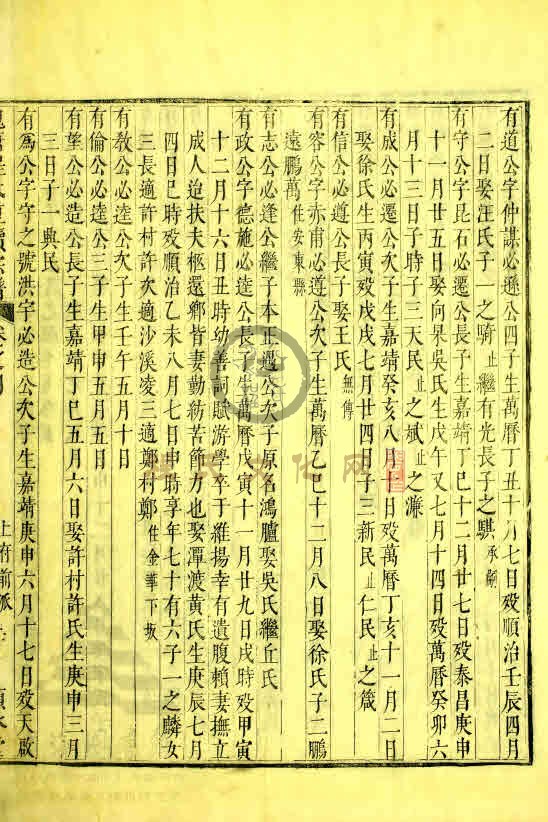 有道公字仲謀必遜公四子生萬曆丁丑十月七日歿順治壬辰四月
二日娶汪氏子一之騎止繼有光長子之騏承嗣
有守公字昆石必遷公長子生嘉靖丁巳十二月廿七日歿泰昌庚申
十一月廿五日娶向杲吳氏生戊午又七月十四日歿萬曆癸卯六
月十三日子時子三天民止之斌止之濂
有成公必遷公次子生嘉靖癸亥八月十日歿萬曆丁亥十一月二日
娶徐氏生丙寅歿戊戌七月廿四日子三新民止仁民止之箴
有信公必遵公長子娶王氏無傳
有容公字亦甫必遵公次子生萬曆乙巳十二月八日娶徐氏子二鵬
遠鵬萬住安東縣
有志公必逢公繼子本正遇公次子原名鴻臚娶吳氏繼丘氏
有政公字德施必逵公長子生萬曆戊寅十一月廿九日戌時歿甲寅
十二月十六日丑時幼善詞賦游學卒于維揚幸有遺腹賴妻撫立
成人迨扶夫柩還鄉皆妻勤紡苦節力也娶潭渡黃氏生庚辰七月
四日巳時歿順治乙未八月七日申時享年七十有六子一之麟女
三長適許村許次適沙溪凌三適鄭村鄭住金華下坂
有敎公必逵公次子生壬午五月十日
有倫公必逵公三子生甲申五月五日
有望公必造公長子生嘉靖丁巳五月六日娶許村許氏生庚申三月
三日子一興民
有爲公字守之號洪宇必造公次子生嘉靖庚申六月十七日歿天啟